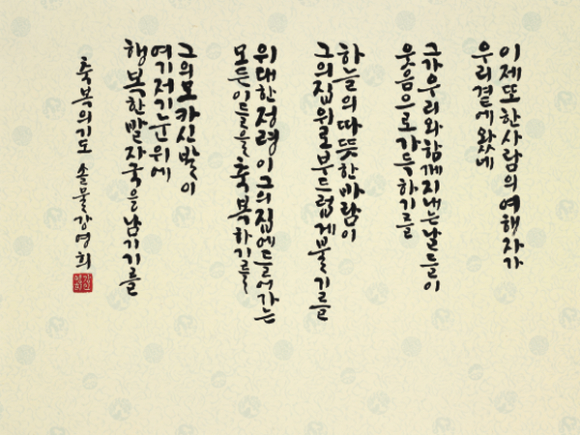 이제 또 한사람의 여행자가
우리곁에 왔네
그가 우리와 함께 지내는 날들이
웃음으로 가득하기를
하늘의 따뜻한 바람이
그의 집 위로 부드럽게 불기를
위대한 정령이 그의 집에 들어가는
모든이들을 축복하기를
그의 모카신 발이
여기저기 눈 위에
행복한 발자국을 남기기를
축복의 기도 솔물 강영희